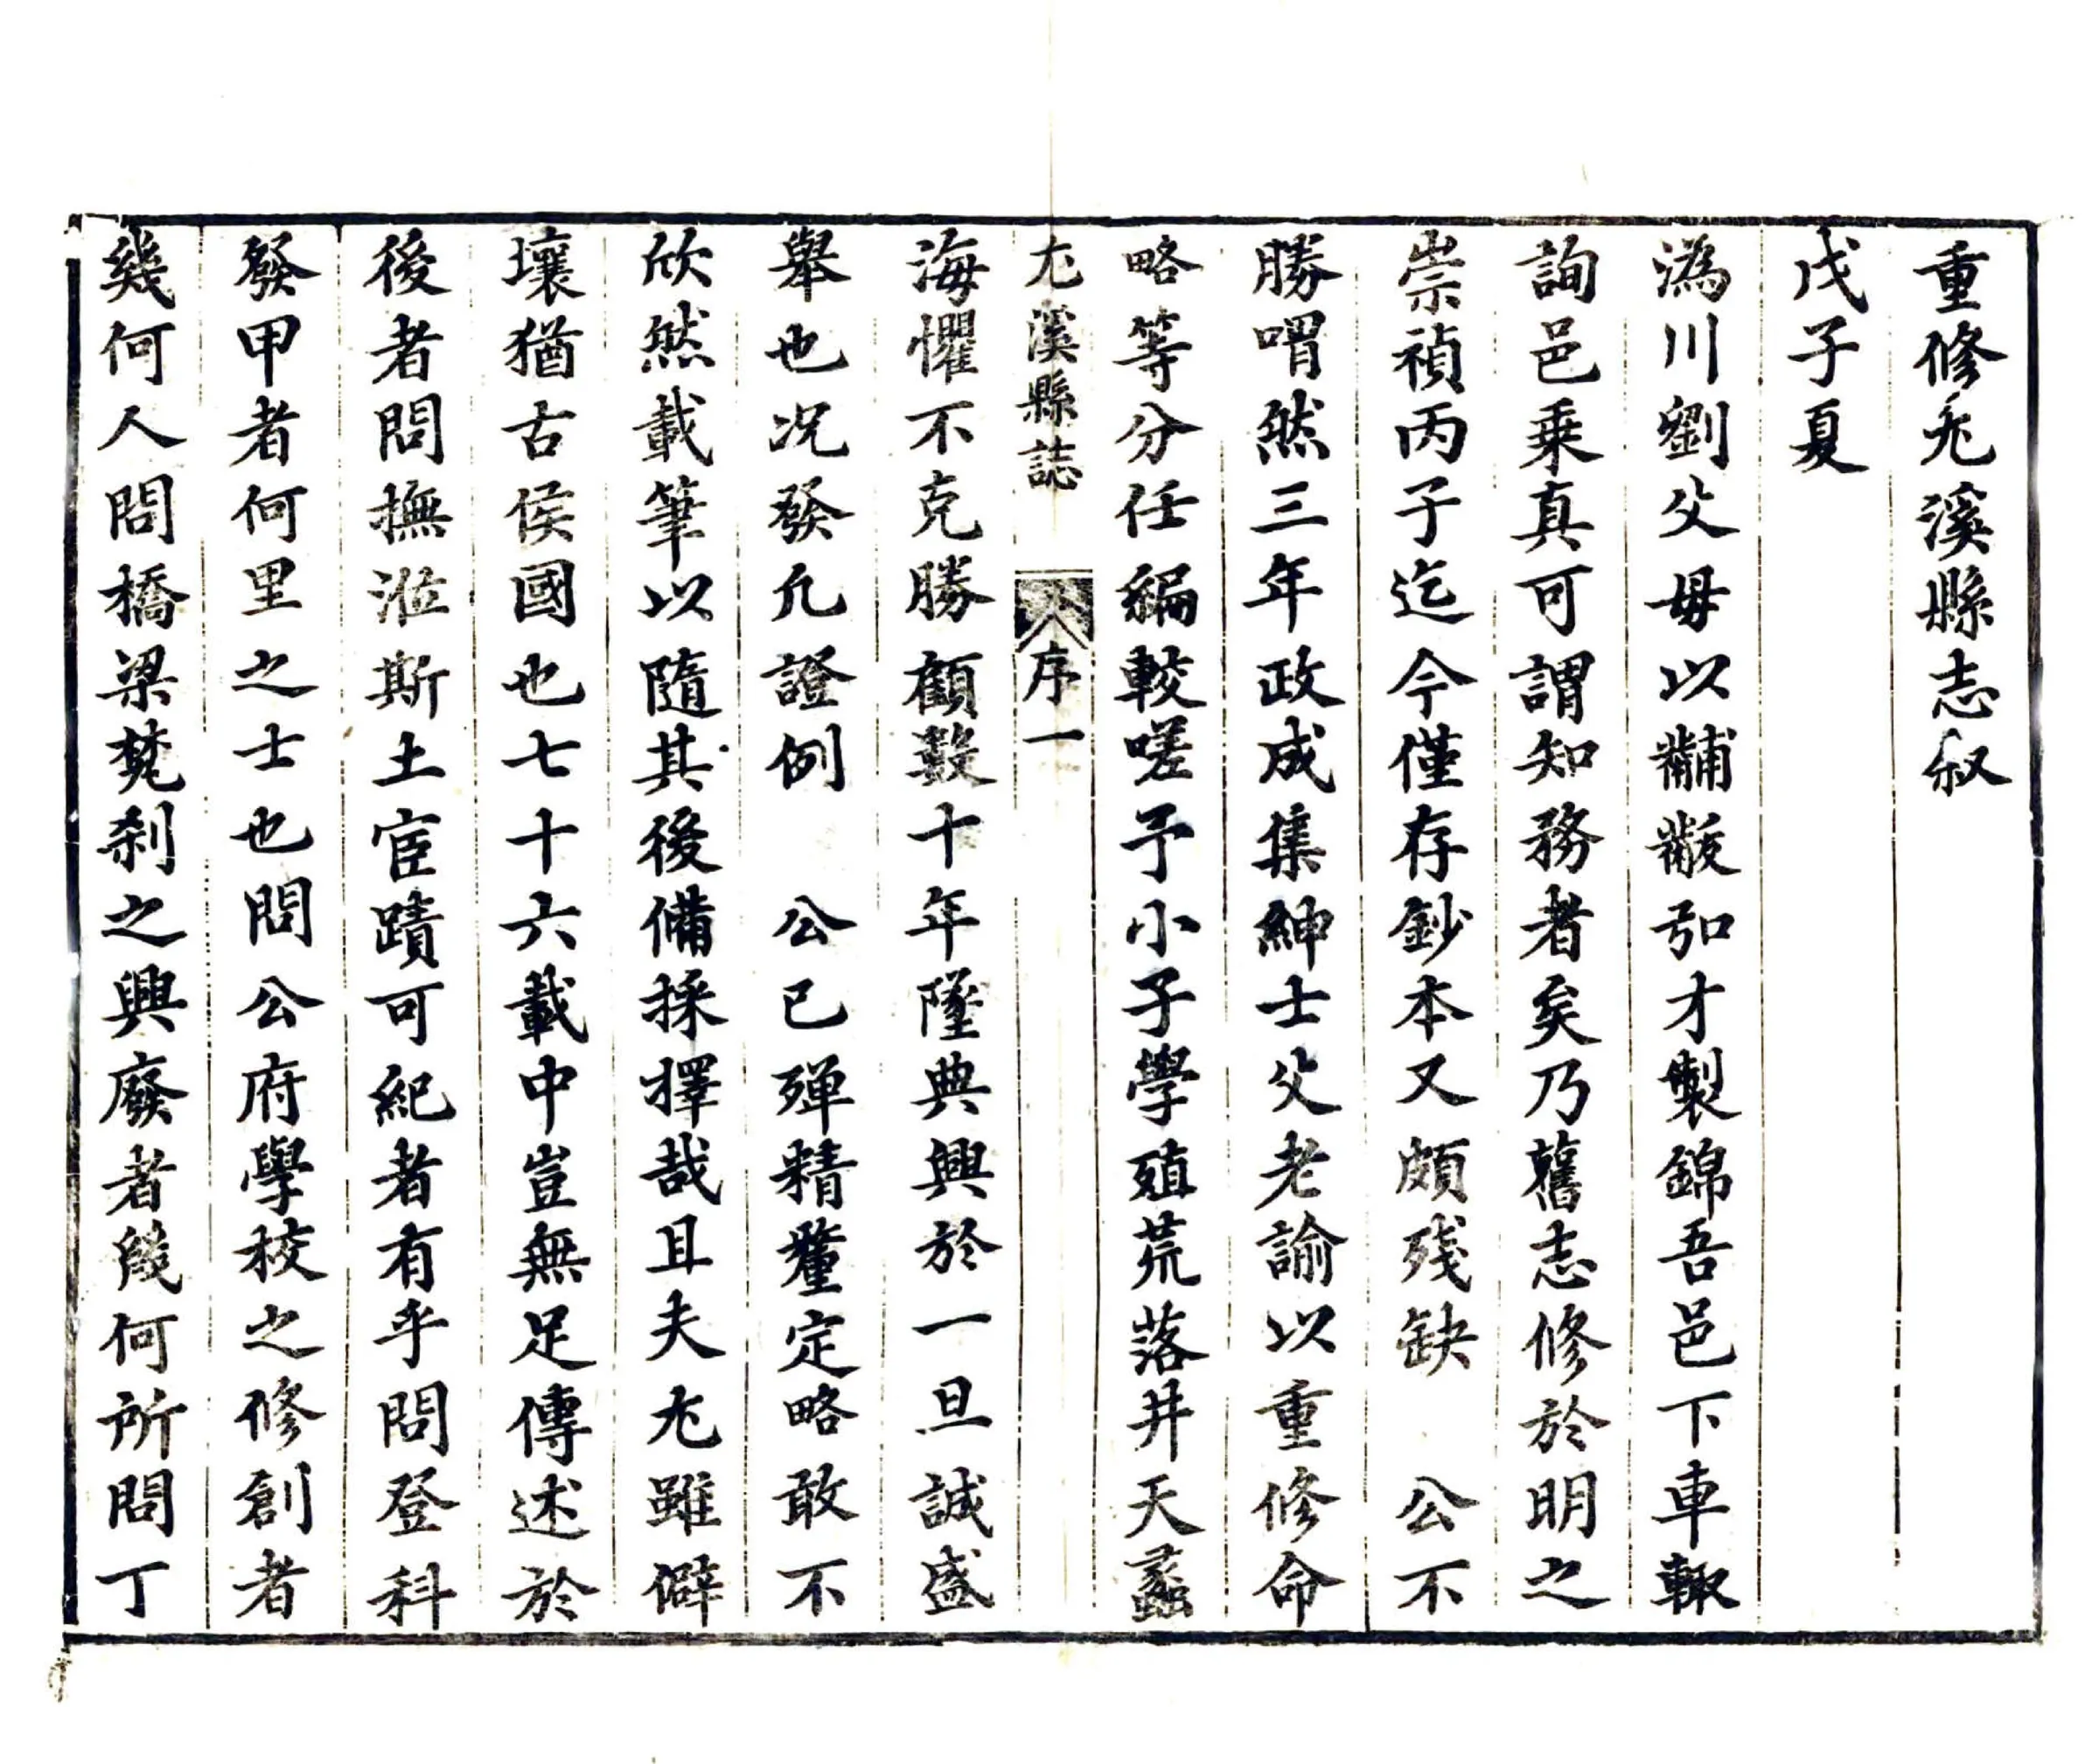 重修尤溪縣志叙
戊子夏
溈川劉父毋以黼黻弘才製錦吾邑下車輙
詢邑乗真可謂知務者矣乃舊志修於明之
崇禎丙子迄今僅存鈔本又頗殘缺　公不
勝喟然三年政成集紳士父老諭以重修命
略等分任編較嗟予小子學殖荒落井天蠡
尤溪縣誌　序一
海懼不克勝顧數十年墜典興於一旦誠盛
舉也况發凡證例　公已殫精釐定略敢不
欣然載筆以隨其後備採擇哉且夫尤雖僻
壤猶古侯國也七十六載中豈無足傳述於
後者問撫涖斯土宦蹟可紀者有乎問登科
發甲者何里之士也問公府學校之修創者
幾何人問橋梁梵刹之興廢者幾何所問丁